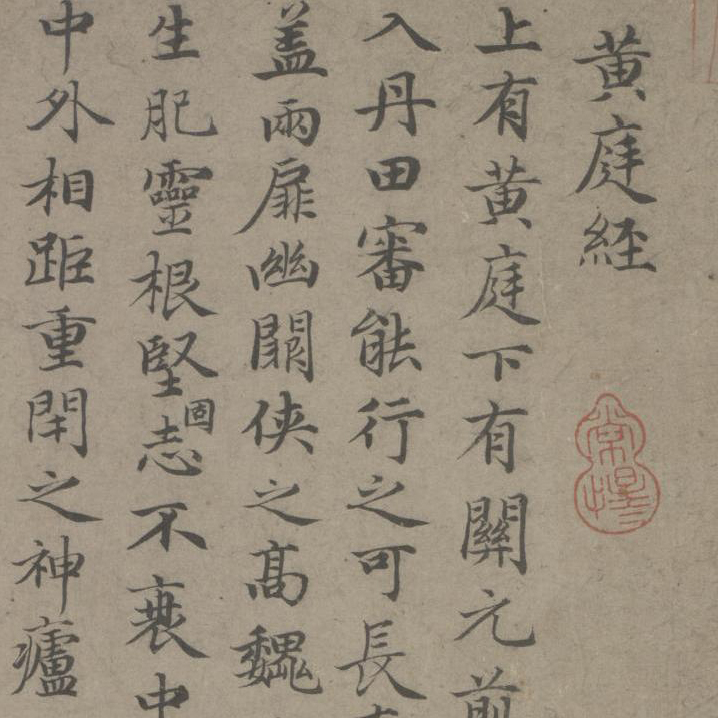 黄庭经
上有黄庭下有關元前
入丹田審能行之可長
盖兩扉幽關侠之髙魏
生肥靈根堅志固不衰中
中外相距重閇之神廬